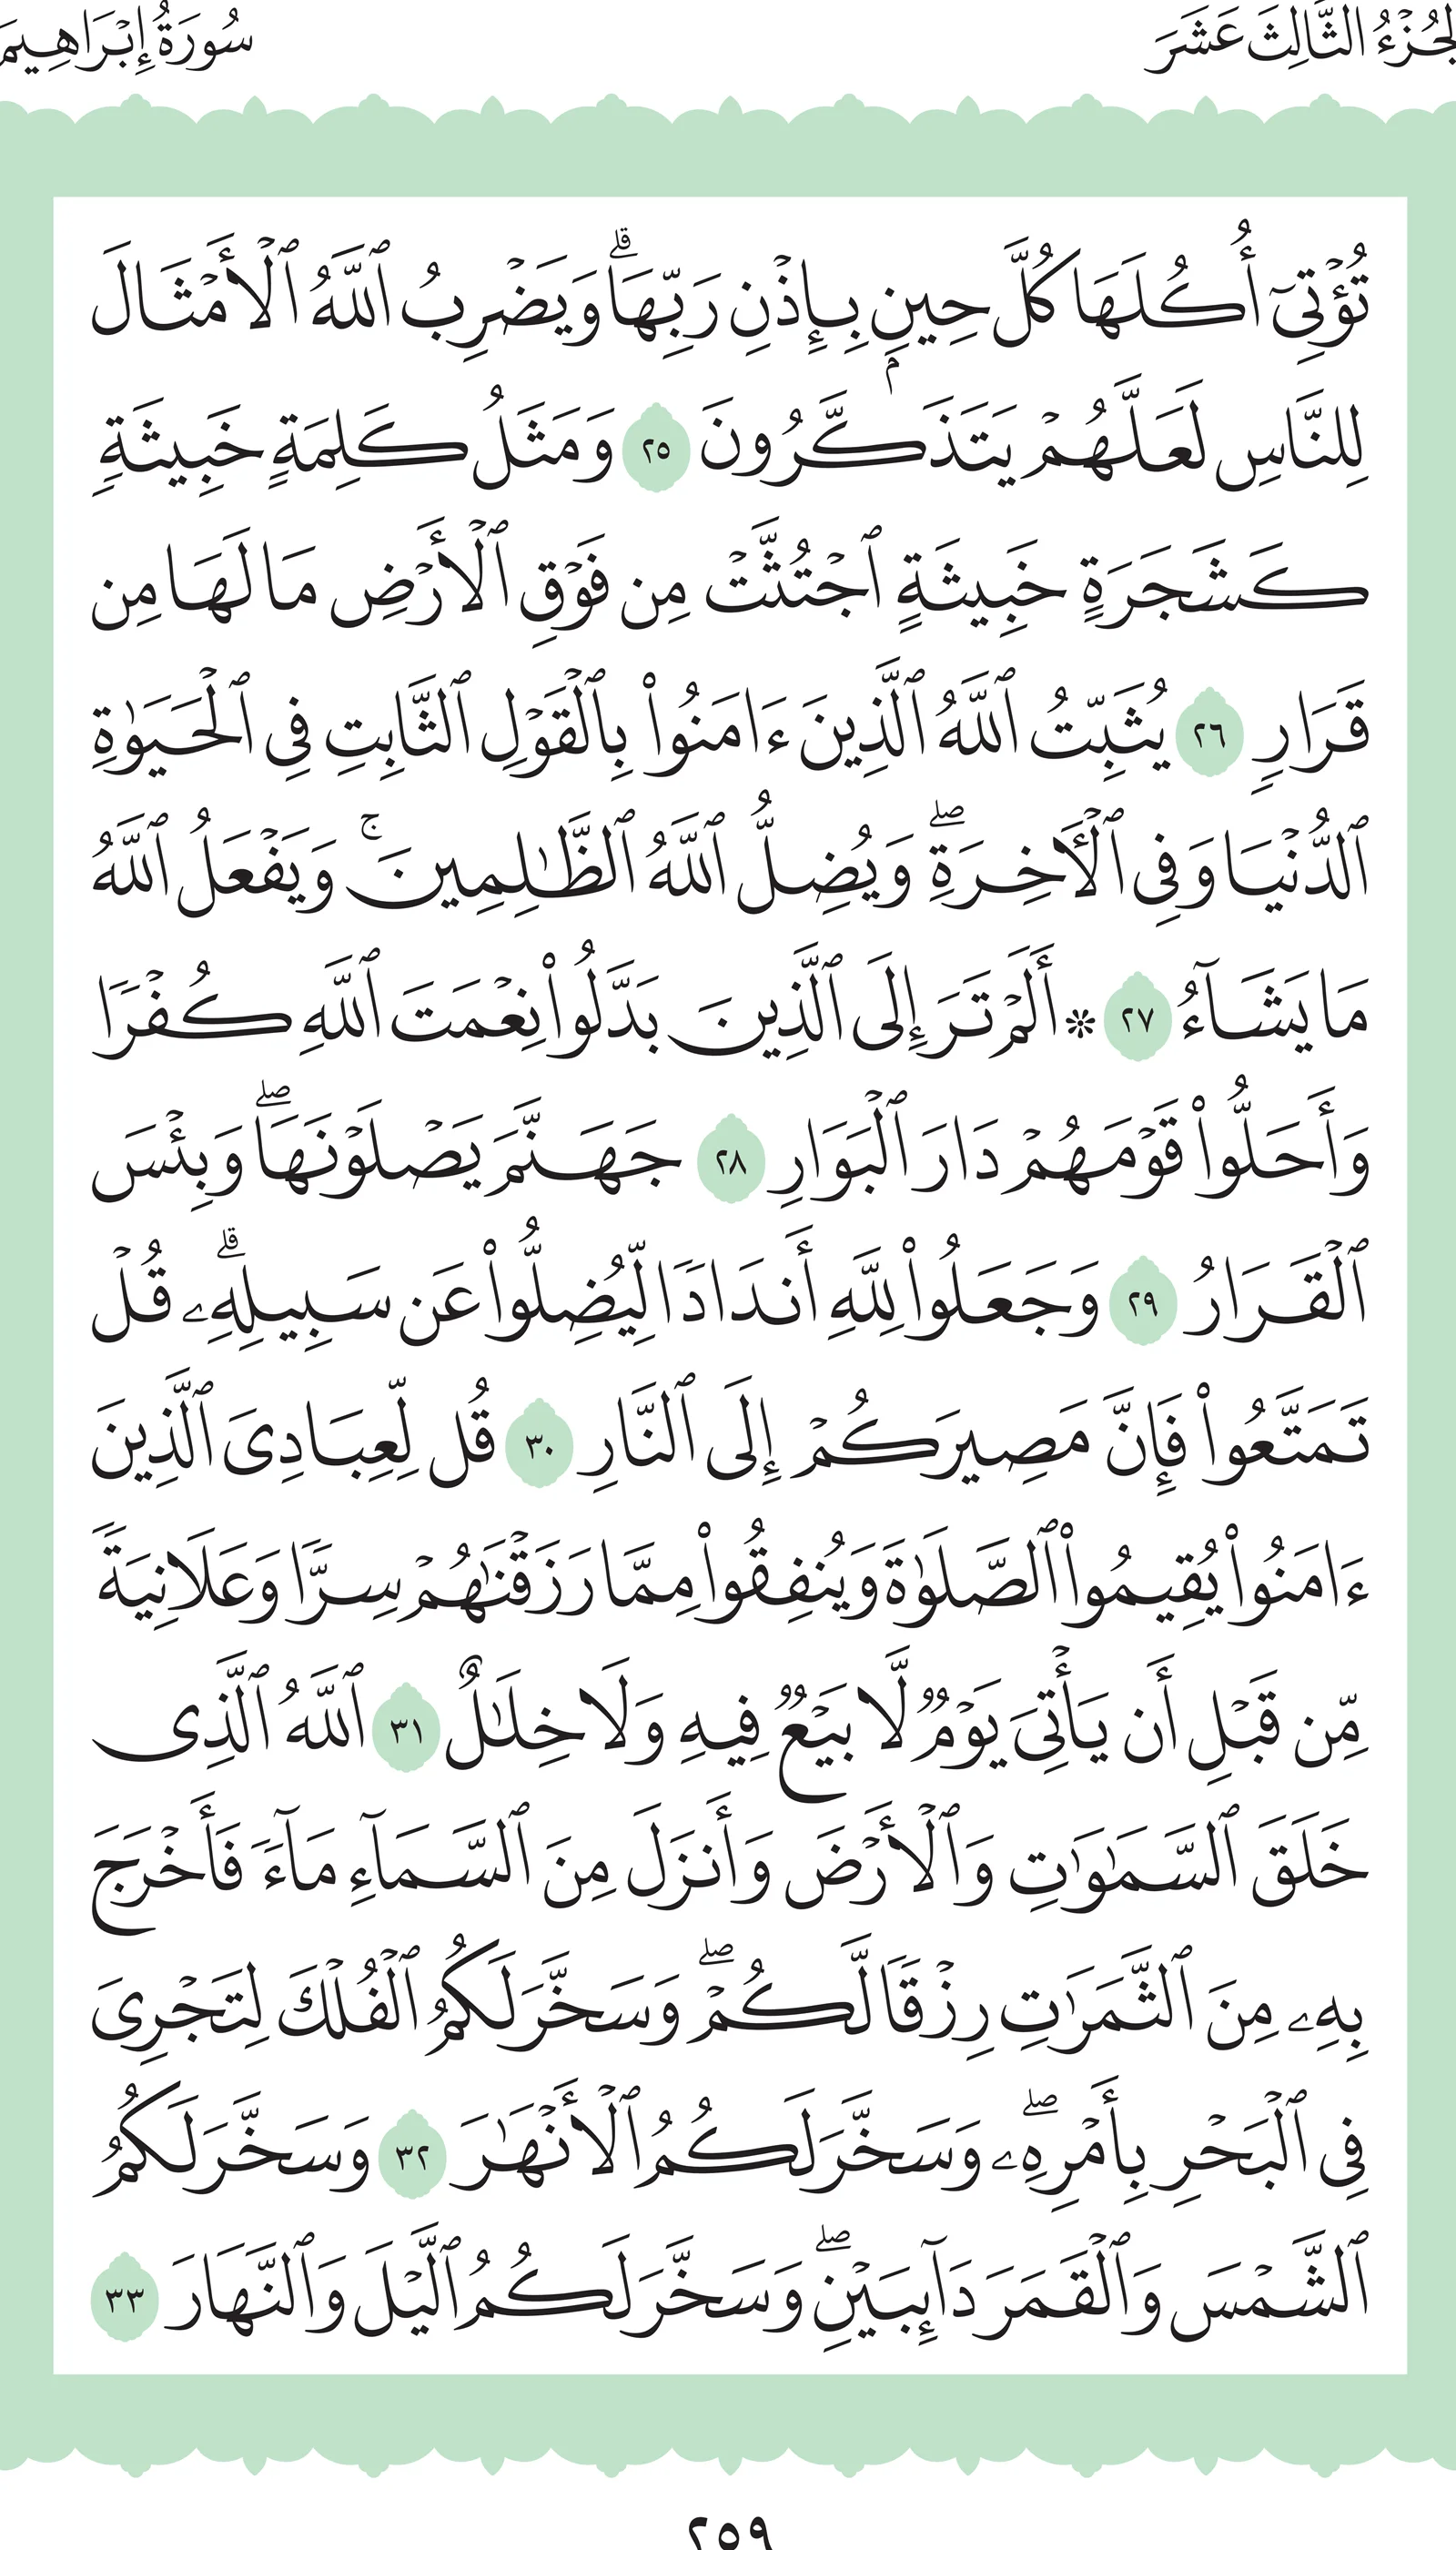 الجُزْءُ الثَّالِثَ عَشَرَ سُورَةُ إِبْرَاهِيم
تُؤْتِىٓ أُكُلَهَا كُلَّ حِينٍۭ بِإِذْنِ رَبِّهَاۗ وَيَضْرِبُ ٱللَّهُ ٱلْأَمْثَالَ
لِلنَّاسِ لَعَلَّهُمْ يَتَذَكَّرُونَ ٢٥ وَمَثَلُ كَلِمَةٍ خَبِيثَةٍ
كَشَجَرَةٍ خَبِيثَةٍ ٱجْتُثَّتْ مِن فَوْقِ ٱلْأَرْضِ مَا لَهَا مِن
قَرَارٍ ٢٦ يُثَبِّتُ ٱللَّهُ ٱلَّذِينَ ءَامَنُوا۟ بِٱلْقَوْلِ ٱلثَّابِتِ فِى ٱلْحَيَوٰةِ
ٱلدُّنْيَا وَفِى ٱلْأَخِرَةِۖ وَيُضِلُّ ٱللَّهُ ٱلظَّٰلِمِينَۚ وَيَفْعَلُ ٱللَّهُ
مَا يَشَآءُ ٢٧ ۞ أَلَمْ تَرَ إِلَى ٱلَّذِينَ بَدَّلُوا۟ نِعْمَتَ ٱللَّهِ كُفْرًا
وَأَحَلُّوا۟ قَوْمَهُمْ دَارَ ٱلْبَوَارِ ٢٨ جَهَنَّمَ يَصْلَوْنَهَاۖ وَبِئْسَ
ٱلْقَرَارُ ٢٩ وَجَعَلُوا۟ لِلَّهِ أَندَادًا لِّيُضِلُّوا۟ عَن سَبِيلِهِۦۗ قُلْ
تَمَتَّعُوا۟ فَإِنَّ مَصِيرَكُمْ إِلَى ٱلنَّارِ ٣٠ قُل لِّعِبَادِىَ ٱلَّذِينَ
ءَامَنُوا۟ يُقِيمُوا۟ ٱلصَّلَوٰةَ وَيُنفِقُوا۟ مِمَّا رَزَقْنَٰهُمْ سِرًّا وَعَلَانِيَةً
مِّن قَبْلِ أَن يَأْتِىَ يَوْمٌ لَّا بَيْعٌ فِيهِ وَلَا خِلَٰلٌ ٣١ ٱللَّهُ ٱلَّذِى
خَلَقَ ٱلسَّمَٰوَٰتِ وَٱلْأَرْضَ وَأَنزَلَ مِنَ ٱلسَّمَآءِ مَآءً فَأَخْرَجَ
بِهِۦ مِنَ ٱلثَّمَرَٰتِ رِزْقًا لَّكُمْۖ وَسَخَّرَ لَكُمُ ٱلْفُلْكَ لِتَجْرِىَ
فِى ٱلْبَحْرِ بِأَمْرِهِۦۖ وَسَخَّرَ لَكُمُ ٱلْأَنْهَٰرَ ٣٢ وَسَخَّرَ لَكُمُ
ٱلشَّمْسَ وَٱلْقَمَرَ دَآئِبَيْنِۖ وَسَخَّرَ لَكُمُ ٱلَّيْلَ وَٱلنَّهَارَ ٣٣
٢٥٩